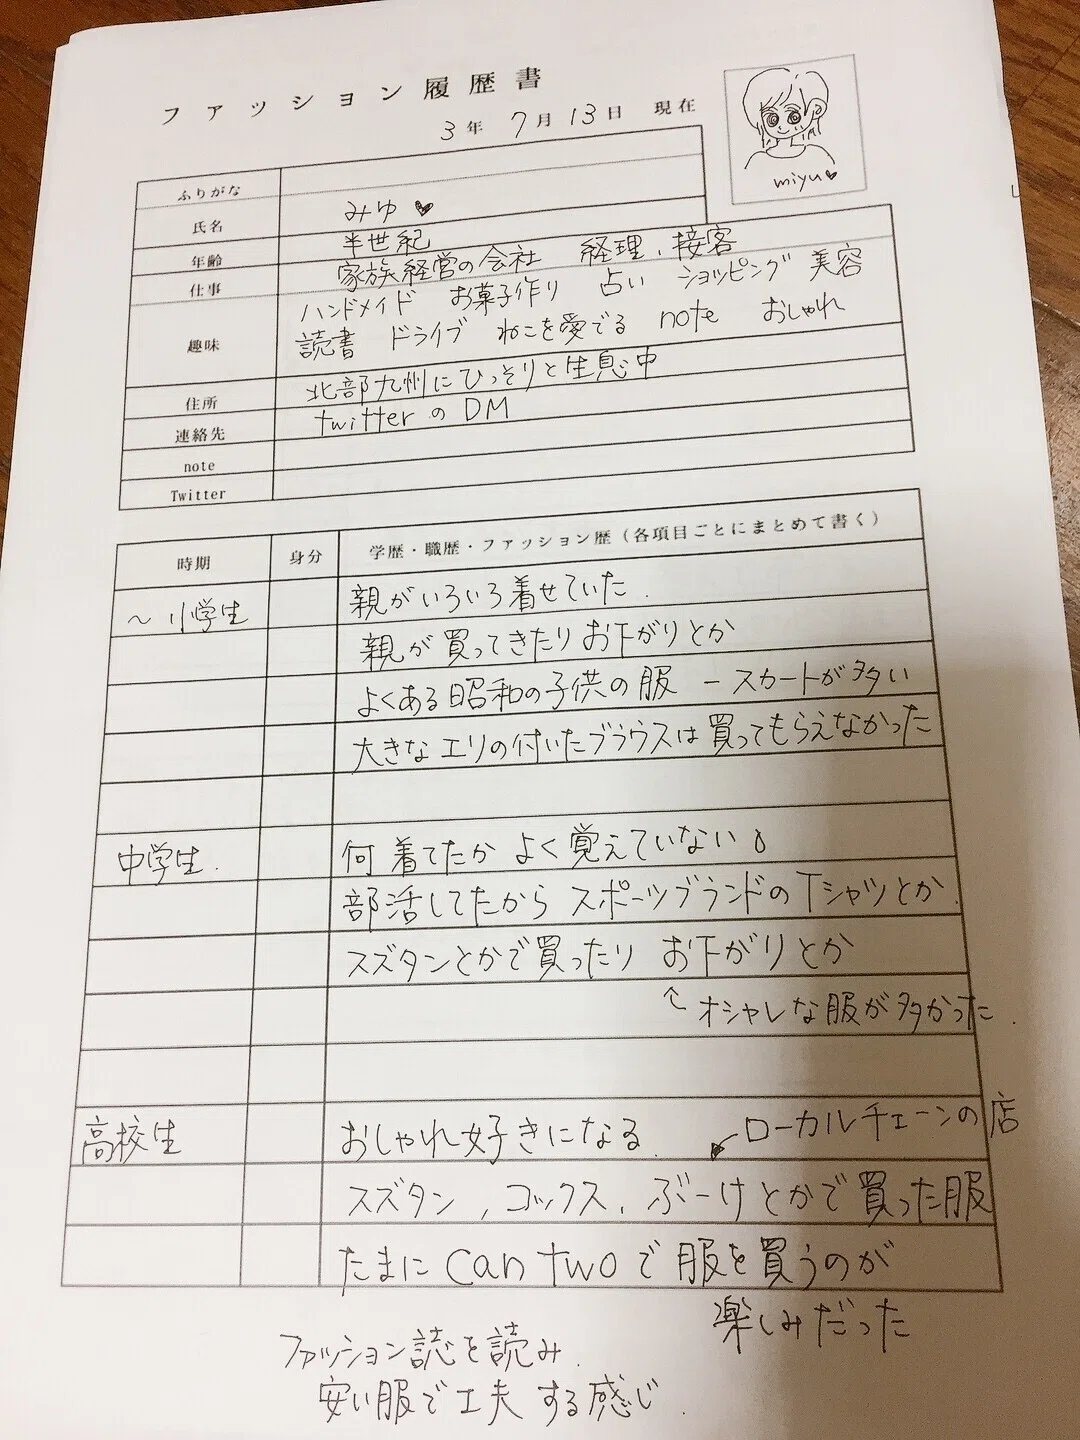 ファッション履歴書
3年 7月 13日 現在
miyu♥
ふりがな
氏名 みゆ♥
年齢 半世紀
仕事 家族経営の会社 経理、接客
趣味 ハンドメイド お菓子作り 占い ショッピング 美容
読書 ドライブ ねこを愛でる note おしゃれ
住所 北部九州にひっそりと生息中
連絡先 twitterのDM
note
Twitter
時期 身分 学歴・職歴・ファッション歴（各項目ごとにまとめて書く）
～小学生 親がいろいろ着せていた.
親が買ってきたりお下がりとか
よくある昭和の子供の服 － スカートが多い
大きなエリの付いたブラウスは買ってもらえなかった
中学生. 何着てたか よく覚えていない
部活してたから スポーツブランドのTシャツとか.
スズタンとかで買ったり お下がりとか
↑オシャレな服が多かった.
高校生 おしゃれ好きになる. ↙ローカルチェーンの店
スズタン, コックス, ぶーけとかで買った服
たまに can twoで服を買うのが
楽しみだった
ファッション誌を読み.
安い服で工夫する感じ.